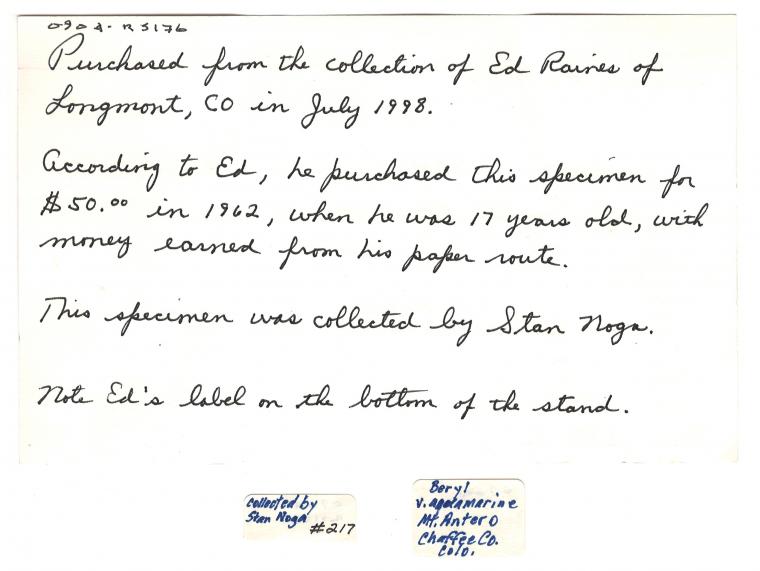 090A-RS176
Purchased from the collection of Ed Raines of
Longmont, CO in July 1998.
According to Ed, he purchased this specimen for
$50.00 in 1962, when he was 17 years old, with
money earned from his paper route.
This specimen was collected by Stan Noga.
Note Ed's label on the bottom of the stand.
collected by
Stan Noga
#217
Beryl
v. aquamarine
Mt. Antero
Chaffee Co.
Colo.